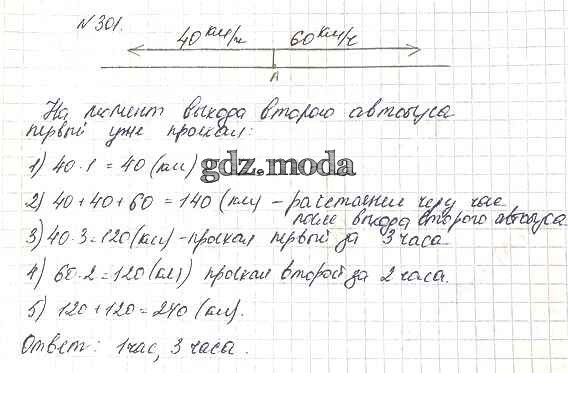 № 301.
40 км/ч 60 км/ч
А
На момент выхода второго автобуса
первый уже проехал:
1) 40 · 1 = 40 (км)
gdz.moda
2) 40 + 40 + 60 = 140 (км) - расстояние через час
после выхода второго автобуса
3) 40 · 3 = 120 (км) - проехал первый за 3 часа
4) 60 · 2 = 120 (км) проехал второй за 2 часа.
5) 120 + 120 = 240 (км).
Ответ: 1 час, 3 часа.